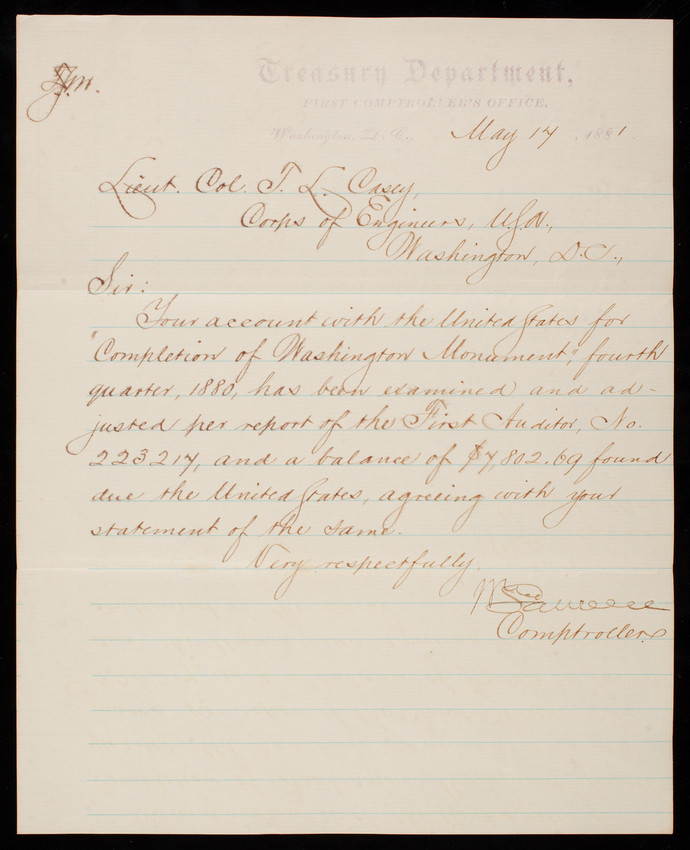 Treasury Department,
FIRST COMPTROLLER'S OFFICE,
Washington, D. C., May 17, 1881.
Lieut. Col. T. L. Casey,
Corps of Engineers, U.S.A.,
Washington, D.C.,
Sir:
Your account with the United States for
"Completion of Washington Monument," fourth
quarter, 1880, has been examined and ad-
justed per report of the First Auditor, No.
223217, and a balance of $7,802.69 found
due the United States, agreeing with your
statement of the same.
Very respectfully
Wm Lawrence
Comptroller.